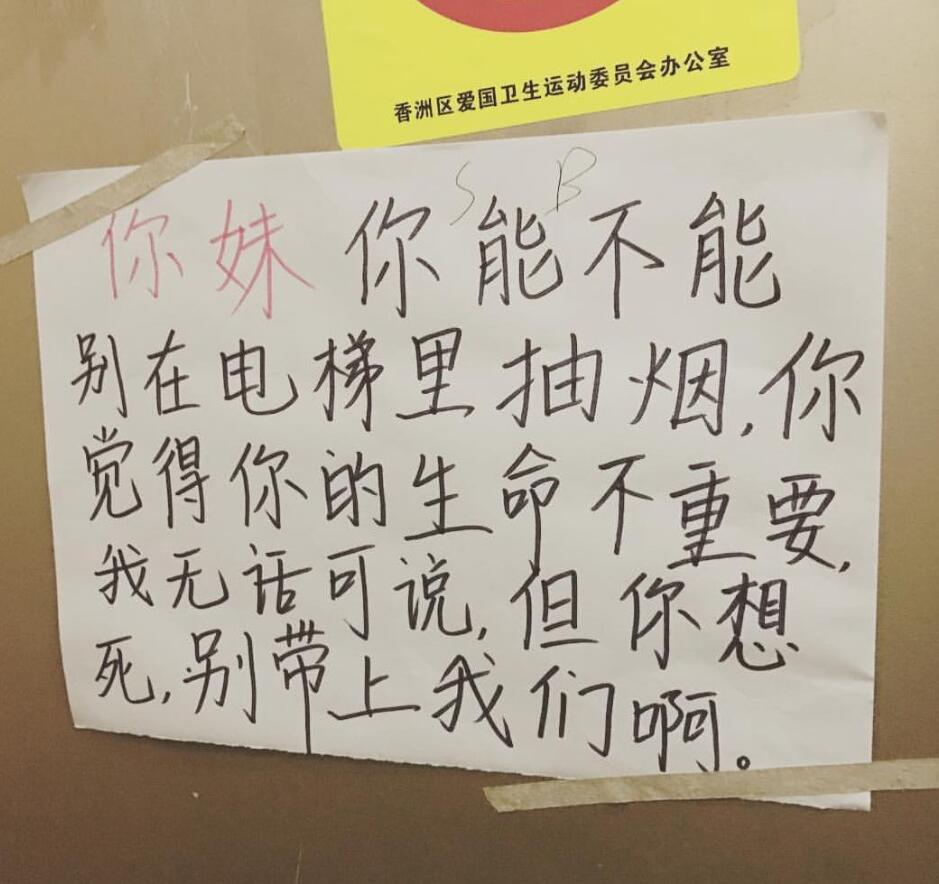 香洲区爱国卫生运动委员会办公室
S B
你妹你能不能
别在电梯里抽烟,你
觉得你的生命不重要,
我无话可说,但你想
死,别带上我们啊。